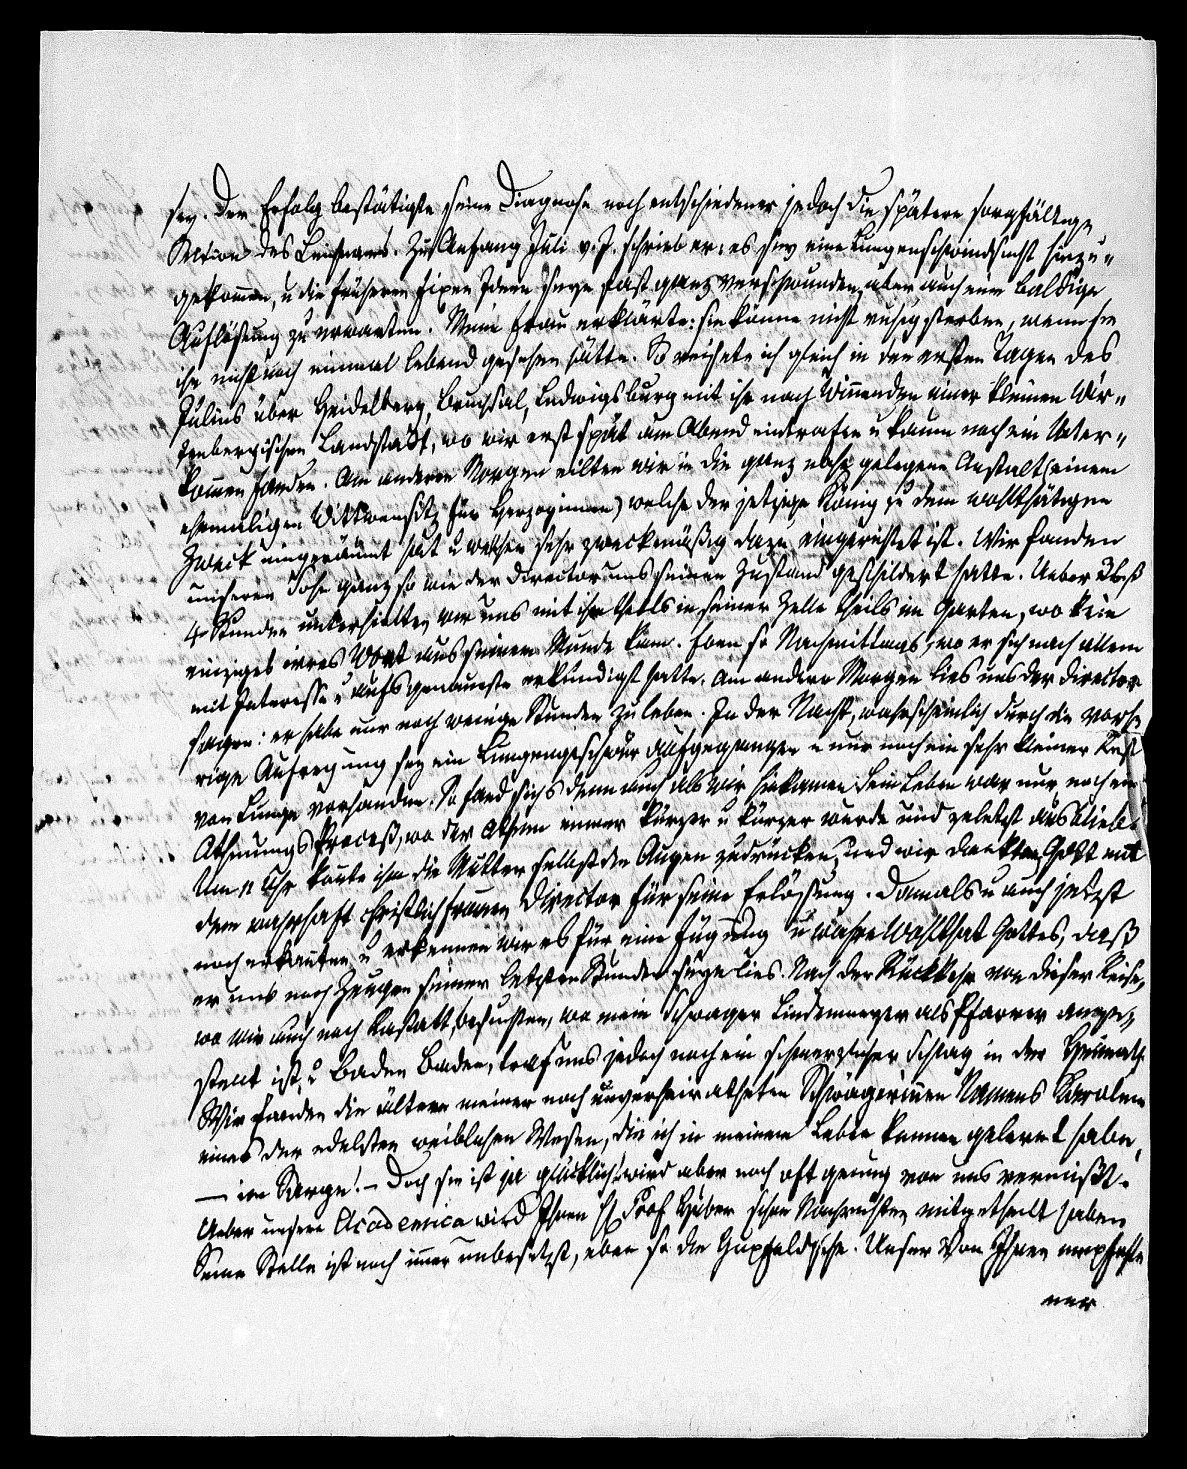 sey. Der Erfolg bestätigte seine Diagnose noch entschiedener jedoch die spätere sorgfältige
Section des Leichnams. Zu Anfang Juli v. J. schrieb er: es sey eine Lungenschwindsucht hinzu„
gekommen, u die früheren fixen Ideen seyen fast ganz verschwunden, aber auch eine baldige
Auflösung zu erwarten. Meine Frau erklärte: sie könne nicht ruhig sterben, wenn sie
ihn nicht noch einmal lebend gesehen hätte. So reisete ich gleich in den ersten Tagen des
Julius über Heidelberg, Bruchsal, Ludwigsburg mit ihr nach Winnenden einer kleinen Wür„
tenbergischen Landstadt, wo wir erst spät am Abend eintrafen u kaum noch ein Unter„
kommen fanden. Am anderen Morgen eilten wir in die ganz nahe gelegene Anstalt (einem
ehemaligen Wittwensitz für Herzoginnen) welche der jetzige König zu dem wohlthätigen
Zweck eingeräumt hat u welche sehr zweckmäßig dazu eingerichtet ist. Wir fanden
unseren Sohn ganz so wie der Director uns seinen Zustand geschildert hatte. Ueber
4 Stunden unterhielten wir uns mit ihm theils in seiner Zelle theils im Garten, wo kein
einziges irres Wort aus seinem Munde kam. Eben so Nachmittags, wo er sich nach allem
mit Interesse u aufs genaueste erkundigt hatte. Am andern Morgen lies uns der Director
sagen: er habe nur noch wenige Stunden zu leben. In der Nacht, wahrscheinlich durch die vorhe
rige Aufregung sey ein Lungengeschwür aufgegangen u nur noch ein sehr kleiner Rest
von Lunge vorhanden. So fand sichs denn auch als wir hinkamen. Sein Leben war nur noch ein
Athmungs Proceß, wo der Athem immer kürzer u kürzer wurde und zuletzt ausblieb.
Um 11 Uhr konnte ihm die Mutter selbst die Augen zudrücken, und wir dankten Gott mit
dem wahrhaft christlich frommen Director für seine Erlösung. Damals u auch jetzt
noch erkannten u erkennen wir es für eine Fügung u wahre Wohlthat Gottes, daß
er uns noch Zeugen seiner letzten Stunden seyn lies. Nach der Rückkehr von dieser Reise,
wo wir auch noch Rastatt, besuchten, wo mein Schwager Lindemeyer als Pfarrer ange„
stellt ist, u Baden Baden, traf uns jedoch noch ein schmerzlicher Schlag in der Heimath.
Wir fanden die ältere meiner noch unverheiratheten Schwägerinnen Namens Karoline
eines der edelsten weiblichen Wesen, die ich in meinem Leben kennen gelernt habe,
— im Sarge! — Doch sie ist ja glücklich! wird aber noch oft genung von uns vermißt.
Ueber unsere Academica wird Ihnen H Prof Huber schon Nachrichten mitgetheilt haben
Seine Stelle ist noch immer unbesetzt, eben so die Hupfeldsche. Unser von Ihnen empfohle
ner